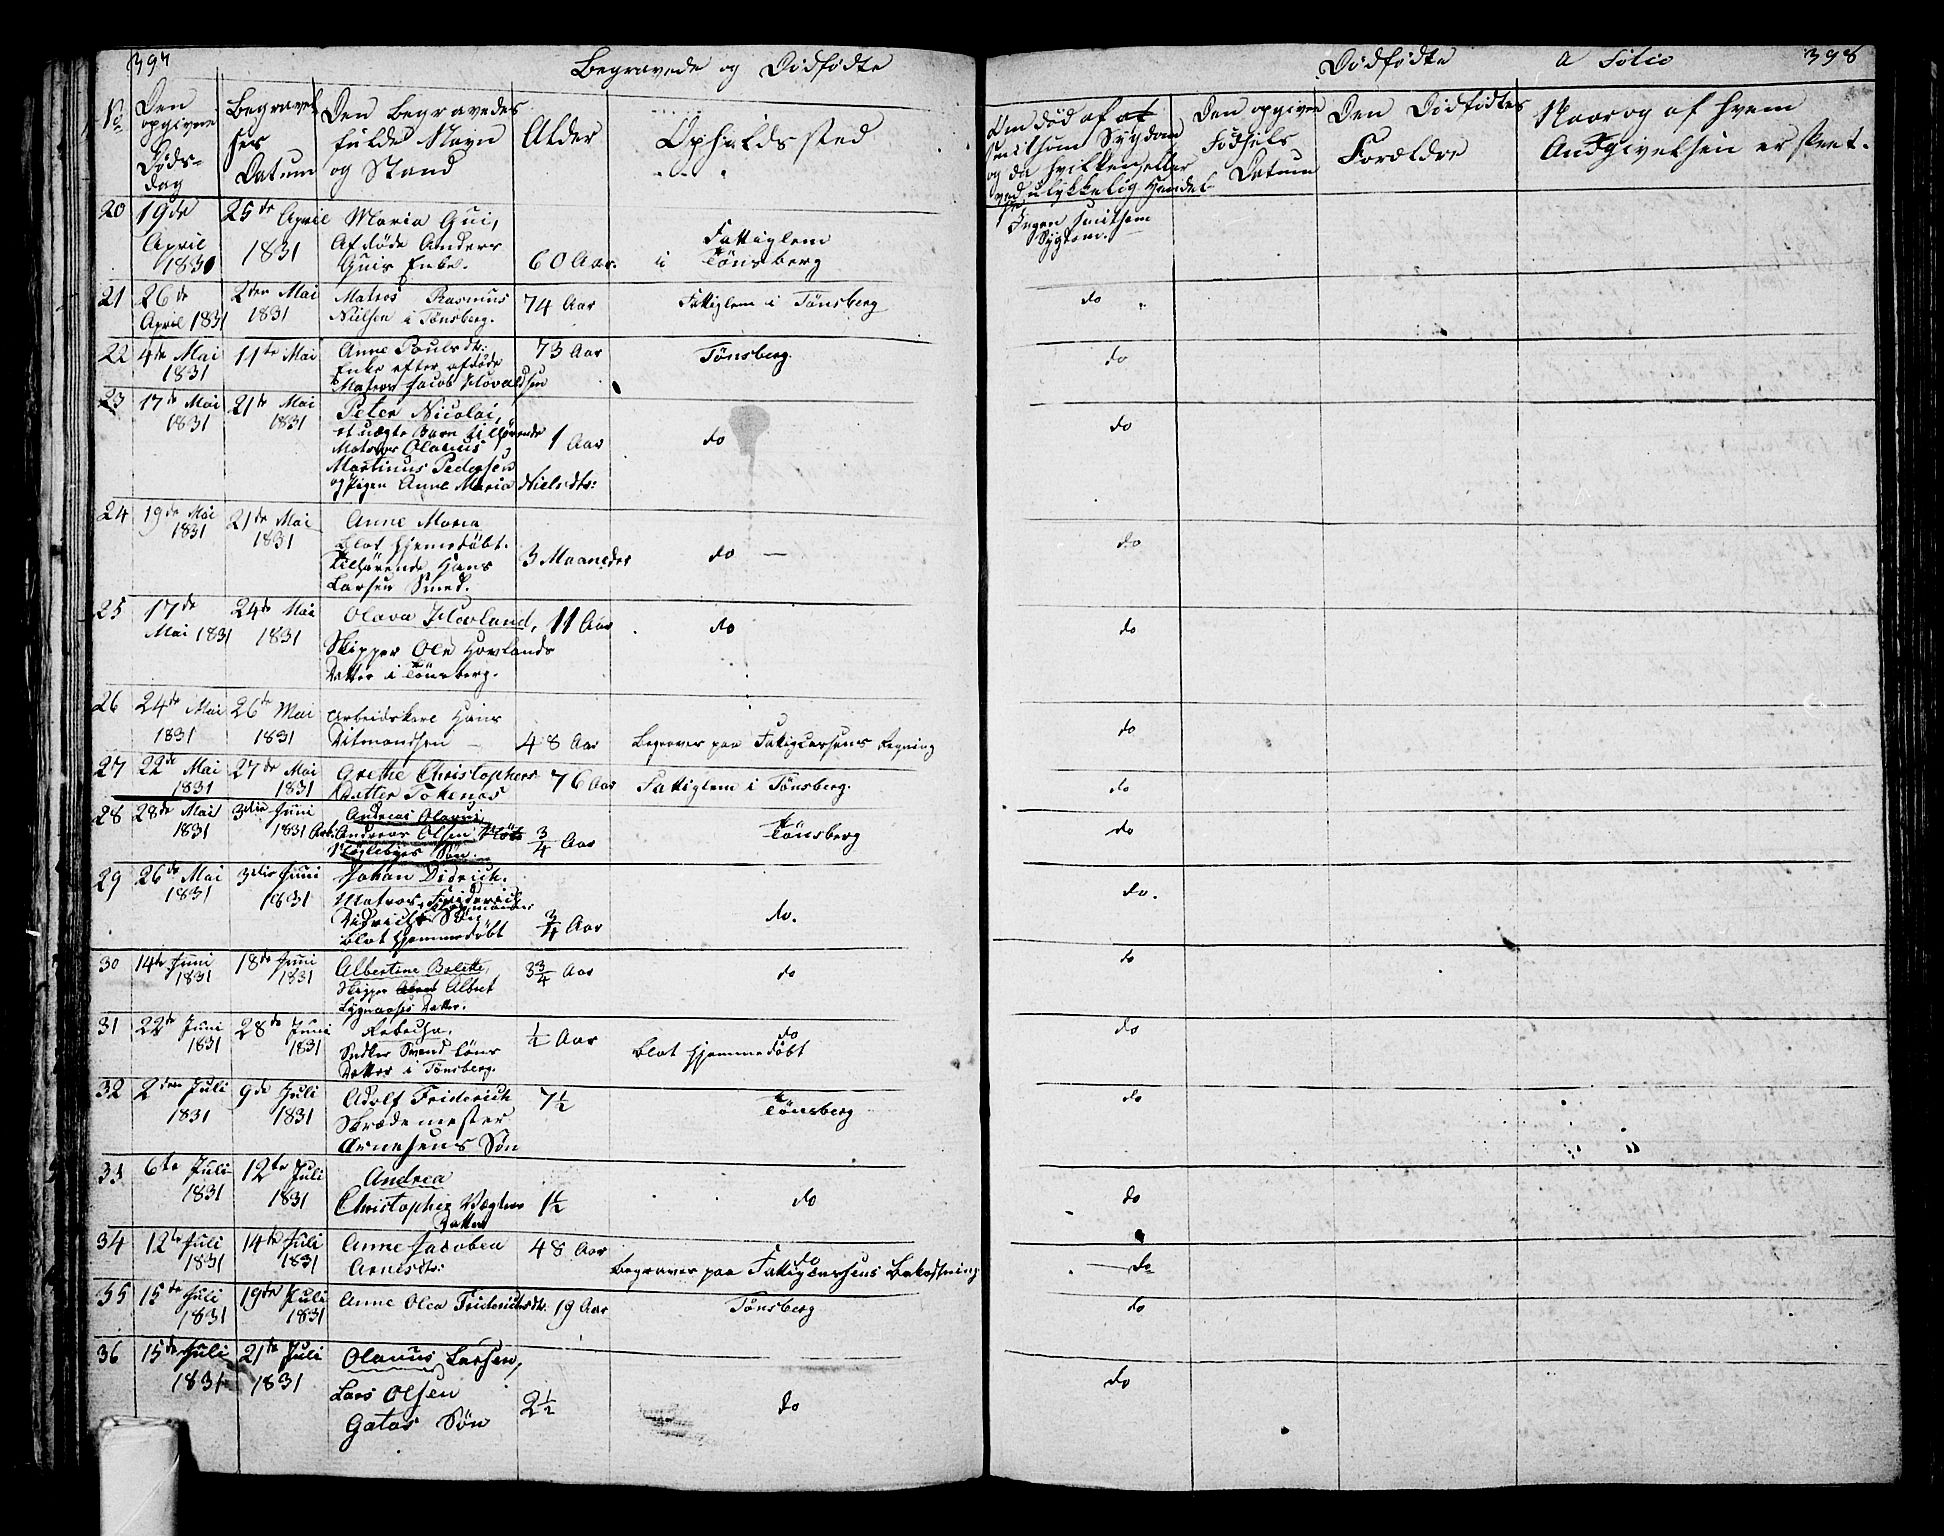 397
Begravede og Dødfødte
No
Den opgivne Døds-dag
Begravelses Datum
Den Begravedes fulde Navn og Stand
Alder
Opholdssted
20 19de April 1830 25de April 1831 Maria Gui, Afdøde Anders Guis Enke. 60 Aar. Fattiglem i Tønsberg
21 26de April 1831 2den Mai 1831 Matros Rasmus Nielsen i Tønsberg. 74 Aar Fattiglem i Tønsberg
22 4de Mai 1831 11te Mai Anne Poulsdtr: Enke efter afdøde Matros Jacob 73 Aar Tønsberg.
23 17de Mai 1831 21de Mai 1831 Peter Nicolai, et uægte Barn tilhørende Matros Olaus Martinus Pedersen og Pigen Anne Maria Nielsdtr: 1 Aar do
24 19de Mai 1831 21de Mai 1831 Anne Maria blot hjemmedøbt. Tilhørende Hans Larsen Smed. 3 Maaneder do —
25 17de Mai 1831 24de Mai 1831 Olava Hovland, Skipper Ole Hovlands Datter i Tønsberg. 11 Aar do
26 24de Mai 1831 26de Mai 1831 Arbeidskarl Hans Ditmandsen — 48 Aar Begraves paa Fattigcassens Regning
27 22de Mai 1831 27de Mai 1831 Grethe Christophers Datter 76 Aar Fattiglem i Tønsberg.
28 28de Mai 1831 3die Juni 1831 Andreas Andreas Olsen Søn. 3/4 Aar Tønsberg
29 26de Mai 1831 3die Juni 1831 Johan Didrich. Matros Friderich Didrichs Søn blot hjemmedøbt 3/4 Aar do.
30 14te Juni 1831 18de Juni 1831 Albertine Bolette, Skipper Albret Datter. 3 3/4 Aar do
31 22de Juni 1831 28de Juni 1831 Svend Datter i Tønsberg. 1/2 Aar do blot hjemmedøbt
32 2den Juli 1831 9de Juli 1831 Adolf Friderich Skrædemester Arnesens Søn 7 1/2 Tønsberg
33 6te Juli 1831 12te Juli 1831 Andrea Christopher Vægters Datter 1 1/2 do
34 12te Juli 1831 14de Juli 1831 Anne Jacobea Arnesdtr: 48 Aar do Begraves paa Fattigcassens Bekostning
35 15te Juli 1831 19de Juli 1831 Anne Olea Fridrichsdtr: 19 Aar Tønsberg
36 15de Juli 1831 21de Juli 1831 Olaus Larsen, Lars Olsen Gatas Søn 2 1/2 do
Dødfødte a Folio 398
Om død af at smitsom Sygdom og da hvilken eller ved ulykkelig Hændelse
Den opgivne Fødsels Datum
Den Dødfødtes Forældre
Naar og af hvem Andgivelsen er skeet.
Ingen smitsom Sygdom.
do
do
do
do
do
do
do
do
do.
do
do
do
do
do
do
do